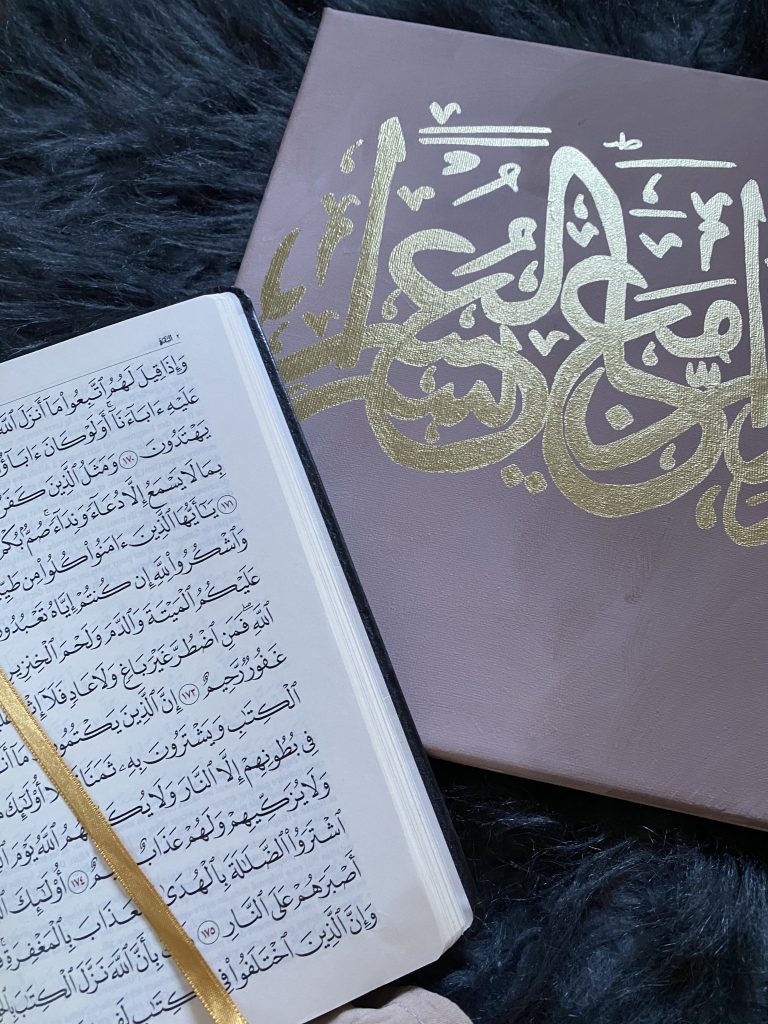 ٢ البقرة
وَإِذَا قِيلَ لَهُمُ ٱتَّبِعُوا۟ مَآ أَنزَلَ ٱللَّهُ
عَلَيْهِ ءَابَآءَنَآ أَوَلَوْ كَانَ ءَابَاؤُ
يَهْتَدُونَ ١٧٠ وَمَثَلُ ٱلَّذِينَ كَفَرُ
بِمَا لَا يَسْمَعُ إِلَّا دُعَآءً وَنِدَآءً صُمٌّۢ بُكْمٌ
١٧١ يَٰٓأَيُّهَا ٱلَّذِينَ ءَامَنُوا۟ كُلُوا۟ مِن طَيِّ
وَٱشْكُرُوا۟ لِلَّهِ إِن كُنتُمْ إِيَّاهُ تَعْبُدُو
عَلَيْكُمُ ٱلْمَيْتَةَ وَٱلدَّمَ وَلَحْمَ ٱلْخِنزِيرِ
ٱللَّهِ فَمَنِ ٱضْطُرَّ غَيْرَ بَاغٍ وَلَا عَادٍ فَلَآ إِ
غَفُورٌ رَّحِيمٌ ١٧٣ إِنَّ ٱلَّذِينَ يَكْتُمُو مَآ أَن
ٱلْكِتَٰبِ وَيَشْتَرُونَ بِهِۦ ثَمَنًا أُو۟لَٰٓئِكَ
فِى بُطُونِهِمْ إِلَّا ٱلنَّارَ وَلَا يُكَ هُمُ ٱللَّهُ يَوْمَ
وَلَا يُزَكِّيهِمْ وَلَهُمْ عَذَابٌ يمٌ ١٧٤ أُو۟لَٰٓئِكَ
ٱشْتَرَوُا۟ ٱلضَّلَٰلَةَ بِٱلْهُدَىٰ وَٱلْعَذَابَ بِٱلْمَغْفِرَةِ
أَصْبَرَهُمْ عَلَى ٱلنَّارِ ١٧٥ بِأَنَّ ٱللَّهَ نَزَّلَ ٱلْكِتَٰبَ
وَإِنَّ ٱلَّذِينَ ٱخْتَلَفُوا۟ فِى ٱلْكِتَٰبِ لَفِ
إن مع العسر يسرا